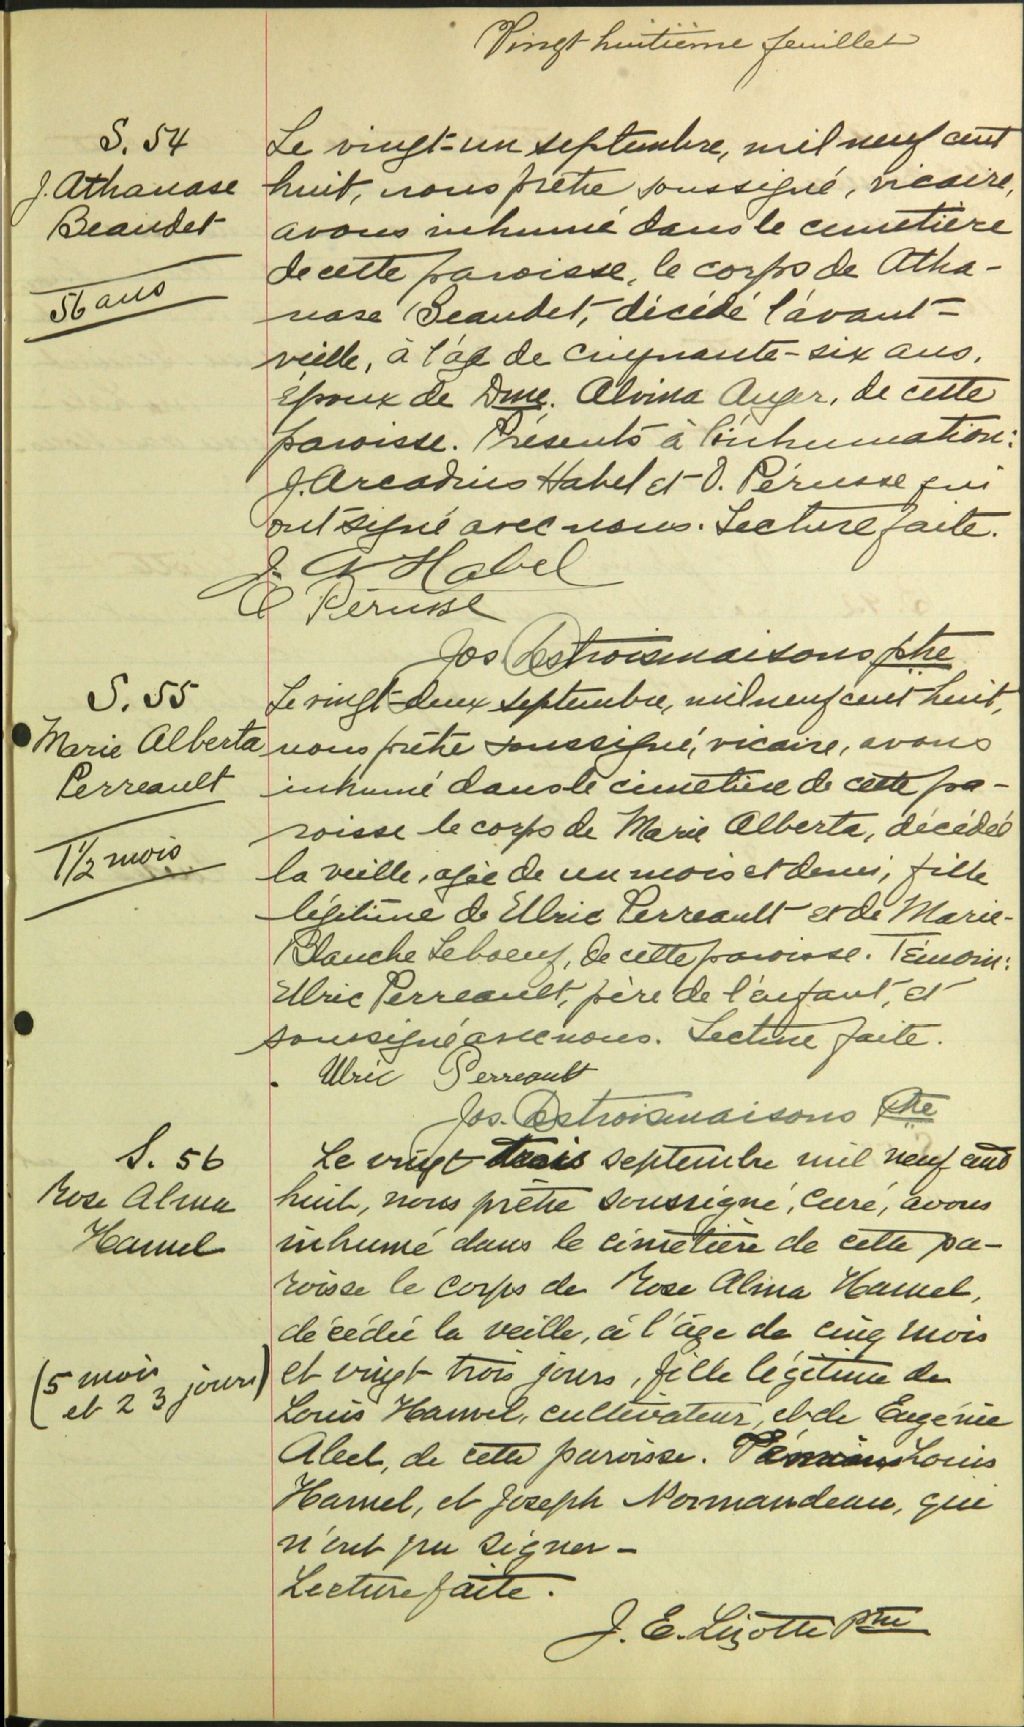 Vingt huitième feuillet
S. 54
J. Athanase
Beaudet
56 ans
Le vingt-un septembre, mil neuf cent
huit, nous prêtre soussigné, vicaire,
avons inhumé dans le cimetière
de cette paroisse, le corps de Atha-
nase Beaudet, décédé l'avant-
veille, à l'âge de cinquante-six ans,
époux de Dme. Alvina Auger, de cette
paroisse. Présents à l'inhumation:
J. Arcadius Habel et O. Pérusse qui
ont signé avec nous. Lecture faite.
J. A Habel
Pérusse
Jos. Destroismaisons ptre
S. 55
Marie Alberta
Perreault
1 1/2 mois
Le vingt-deux septembre, mil neuf cent huit,
nous prêtre soussigné, vicaire, avons
inhumé dans le cimetière de cette pa-
roisse le corps de Marie Alberta, décédée
la veille, agée de un mois et demi, fille
légitime de Ulric Perreault et de Marie-
Blanche Leboeuf, de cette paroisse. Témoin:
Ulric Perreault, père de l'enfant, et
soussigné avec nous. Lecture faite.
Ulric Perreault
Jos. Destroismaisons Ptre
S. 56
Rose Alma
Hamel
(5 mois
et 23 jours)
Le vingt trois septembre mil neuf cent
huit, nous prêtre soussigné, curé, avons
inhumé dans le cimetière de cette pa-
roisse le corps de Rose Alma Hamel,
décédée la veille, à l'âge de cinq mois
et vingt trois jours, fille légitime de
Louis Hamel, cultivateur, et de Eugénie
de cette paroisse. Témoins Louis
Hamel, et Joseph Normandeau, qui
n'ont pu signer -
Lecture faite.
J. E. Lizotte Ptre